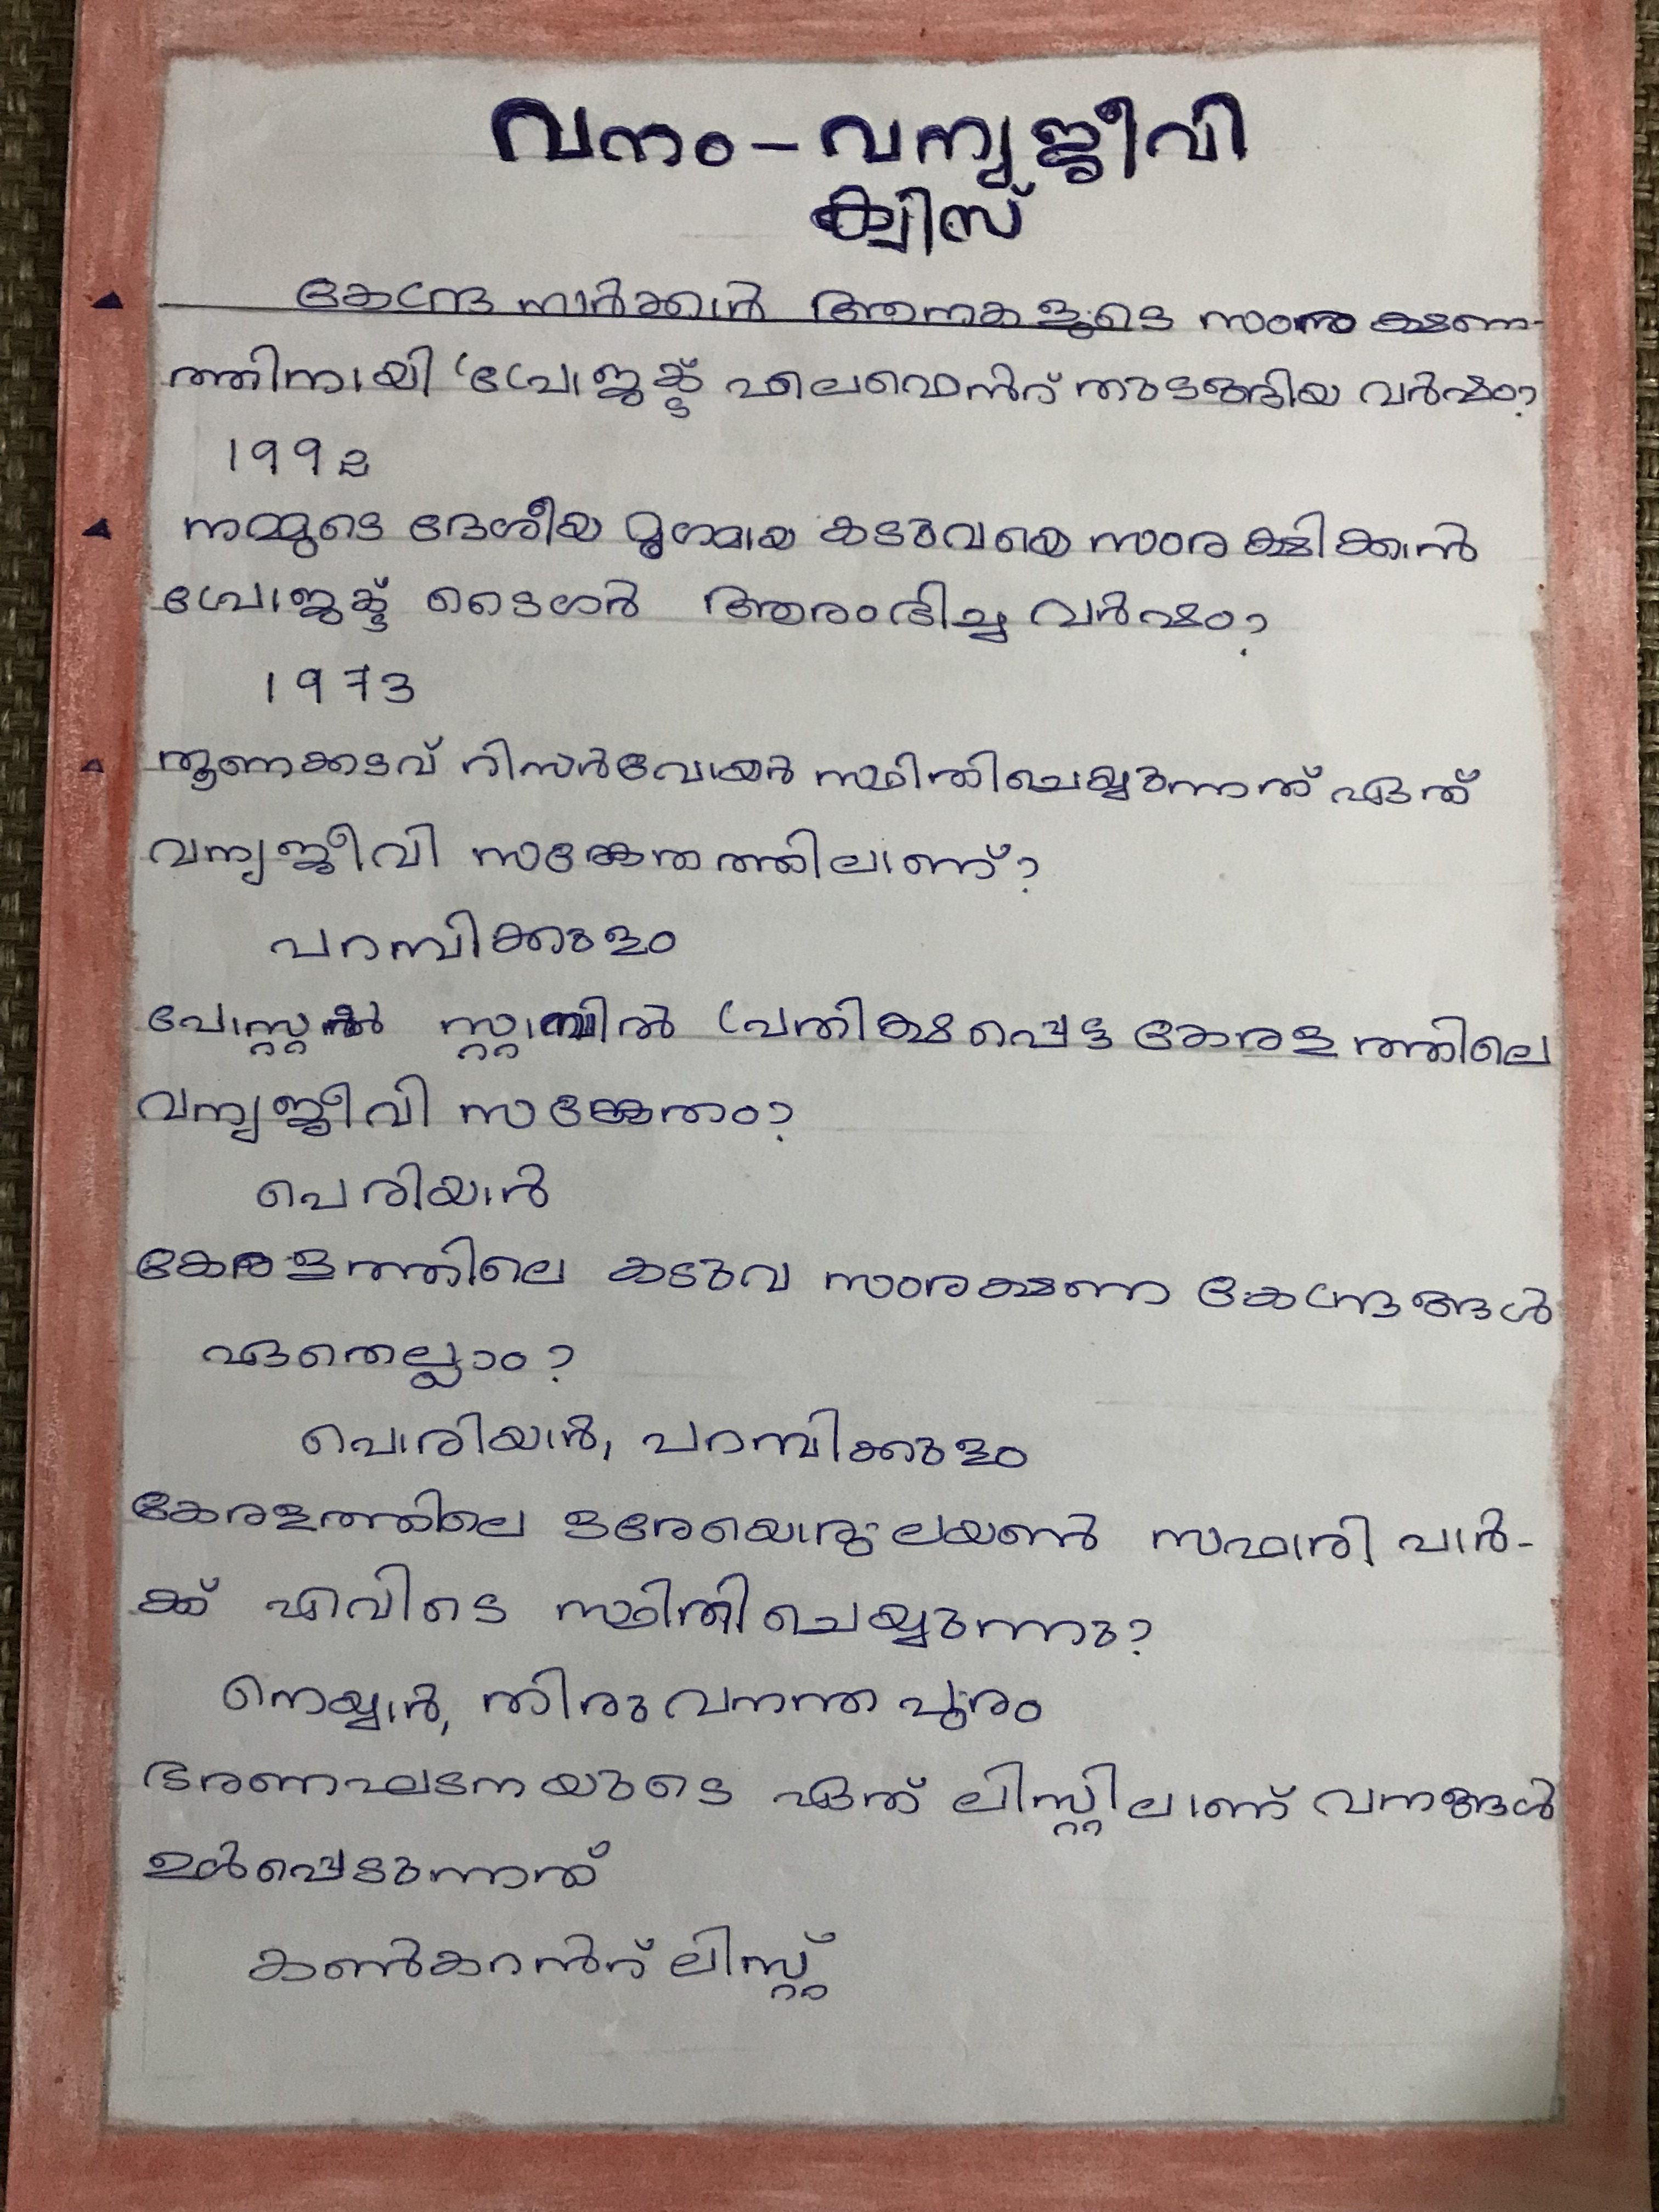 വനം - വന്യജീവി
ക്വിസ്
കേന്ദ്ര സർക്കാർ ആനകളുടെ സംരക്ഷണ-
ത്തിനായി 'പ്രോജക്ട് എലഫെൻറ് തുടങ്ങിയ വർഷം?
1992
നമ്മുടെ ദേശീയ മൃഗമായ കടുവയെ സംരക്ഷിക്കാൻ
പ്രോജക്ട് ടൈഗർ ആരംഭിച്ച വർഷം?
1973
തൂണക്കടവ് റിസർവോയർ സ്ഥിതിചെയ്യുന്നത് ഏത്
വന്യജീവി സങ്കേതത്തിലാണ്?
പറമ്പിക്കുളം
പോസ്റ്റൽ സ്റ്റാമ്പിൽ പ്രതിക്ഷപ്പെട്ട കേരളത്തിലെ
വന്യജീവി സങ്കേതം?
പെരിയാർ
കേരളത്തിലെ കടുവ സംരക്ഷണ കേന്ദ്രങ്ങൾ
ഏതെല്ലാം?
പെരിയാർ, പറമ്പിക്കുളം
കേരളത്തിലെ ഒരേയൊരു ലയൺ സഫാരി പാർ-
ക്ക് എവിടെ സ്ഥിതിചെയ്യുന്നു?
നെയ്യാർ, തിരുവനന്തപുരം
ഭരണഘടനയുടെ ഏത് ലിസ്റ്റിലാണ് വനങ്ങൾ
ഉൾപ്പെടുന്നത്
കൺകറൻറ് ലിസ്റ്റ്